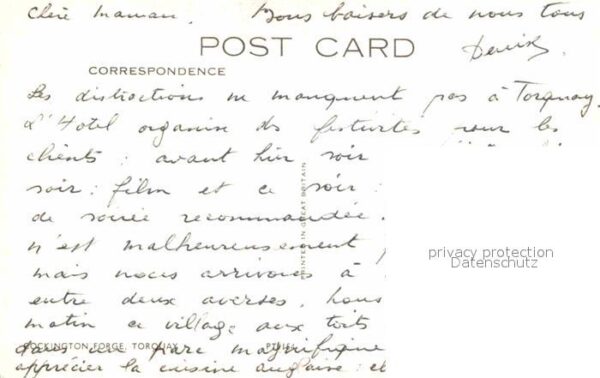 Chère Maman. Bons baisers de nous tous
Denise.
POST CARD
CORRESPONDENCE
Les distractions ne manquent pas à Torquay.
L'Hotel organise des festivités pour les
clients : avant hier soir
soir : film et ce soir :
de soirée recommandée.
n'est malheureusement
mais nous arrivons à
entre deux averses. Nous
matin ce village aux toits
dans un parc magnifique
apprécier la cuisine anglaise : et
PRINTED IN GREAT BRITAIN
COCKINGTON FORGE, TORQUAY.
privacy protection
Datenschutz